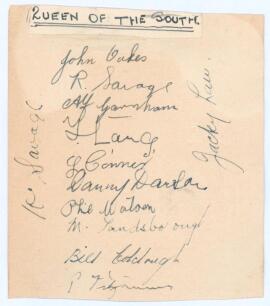 QUEEN OF THE SOUTH.
John Oakes
R. Savage
Alf Garnham
T. Lang
J. Connor
Danny Dardon
Phil Watson
M. Landsborough
Bill Coldough
R. Savage
Jacky Law.